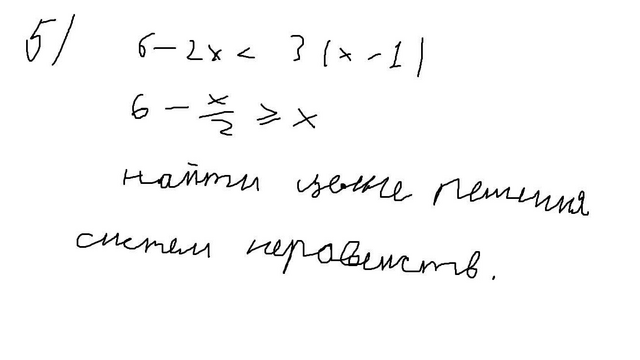 5) 6 - 2x < 3(x - 1)
6 - x/2 ⩾ x
найти целые решения
систем неравенств.